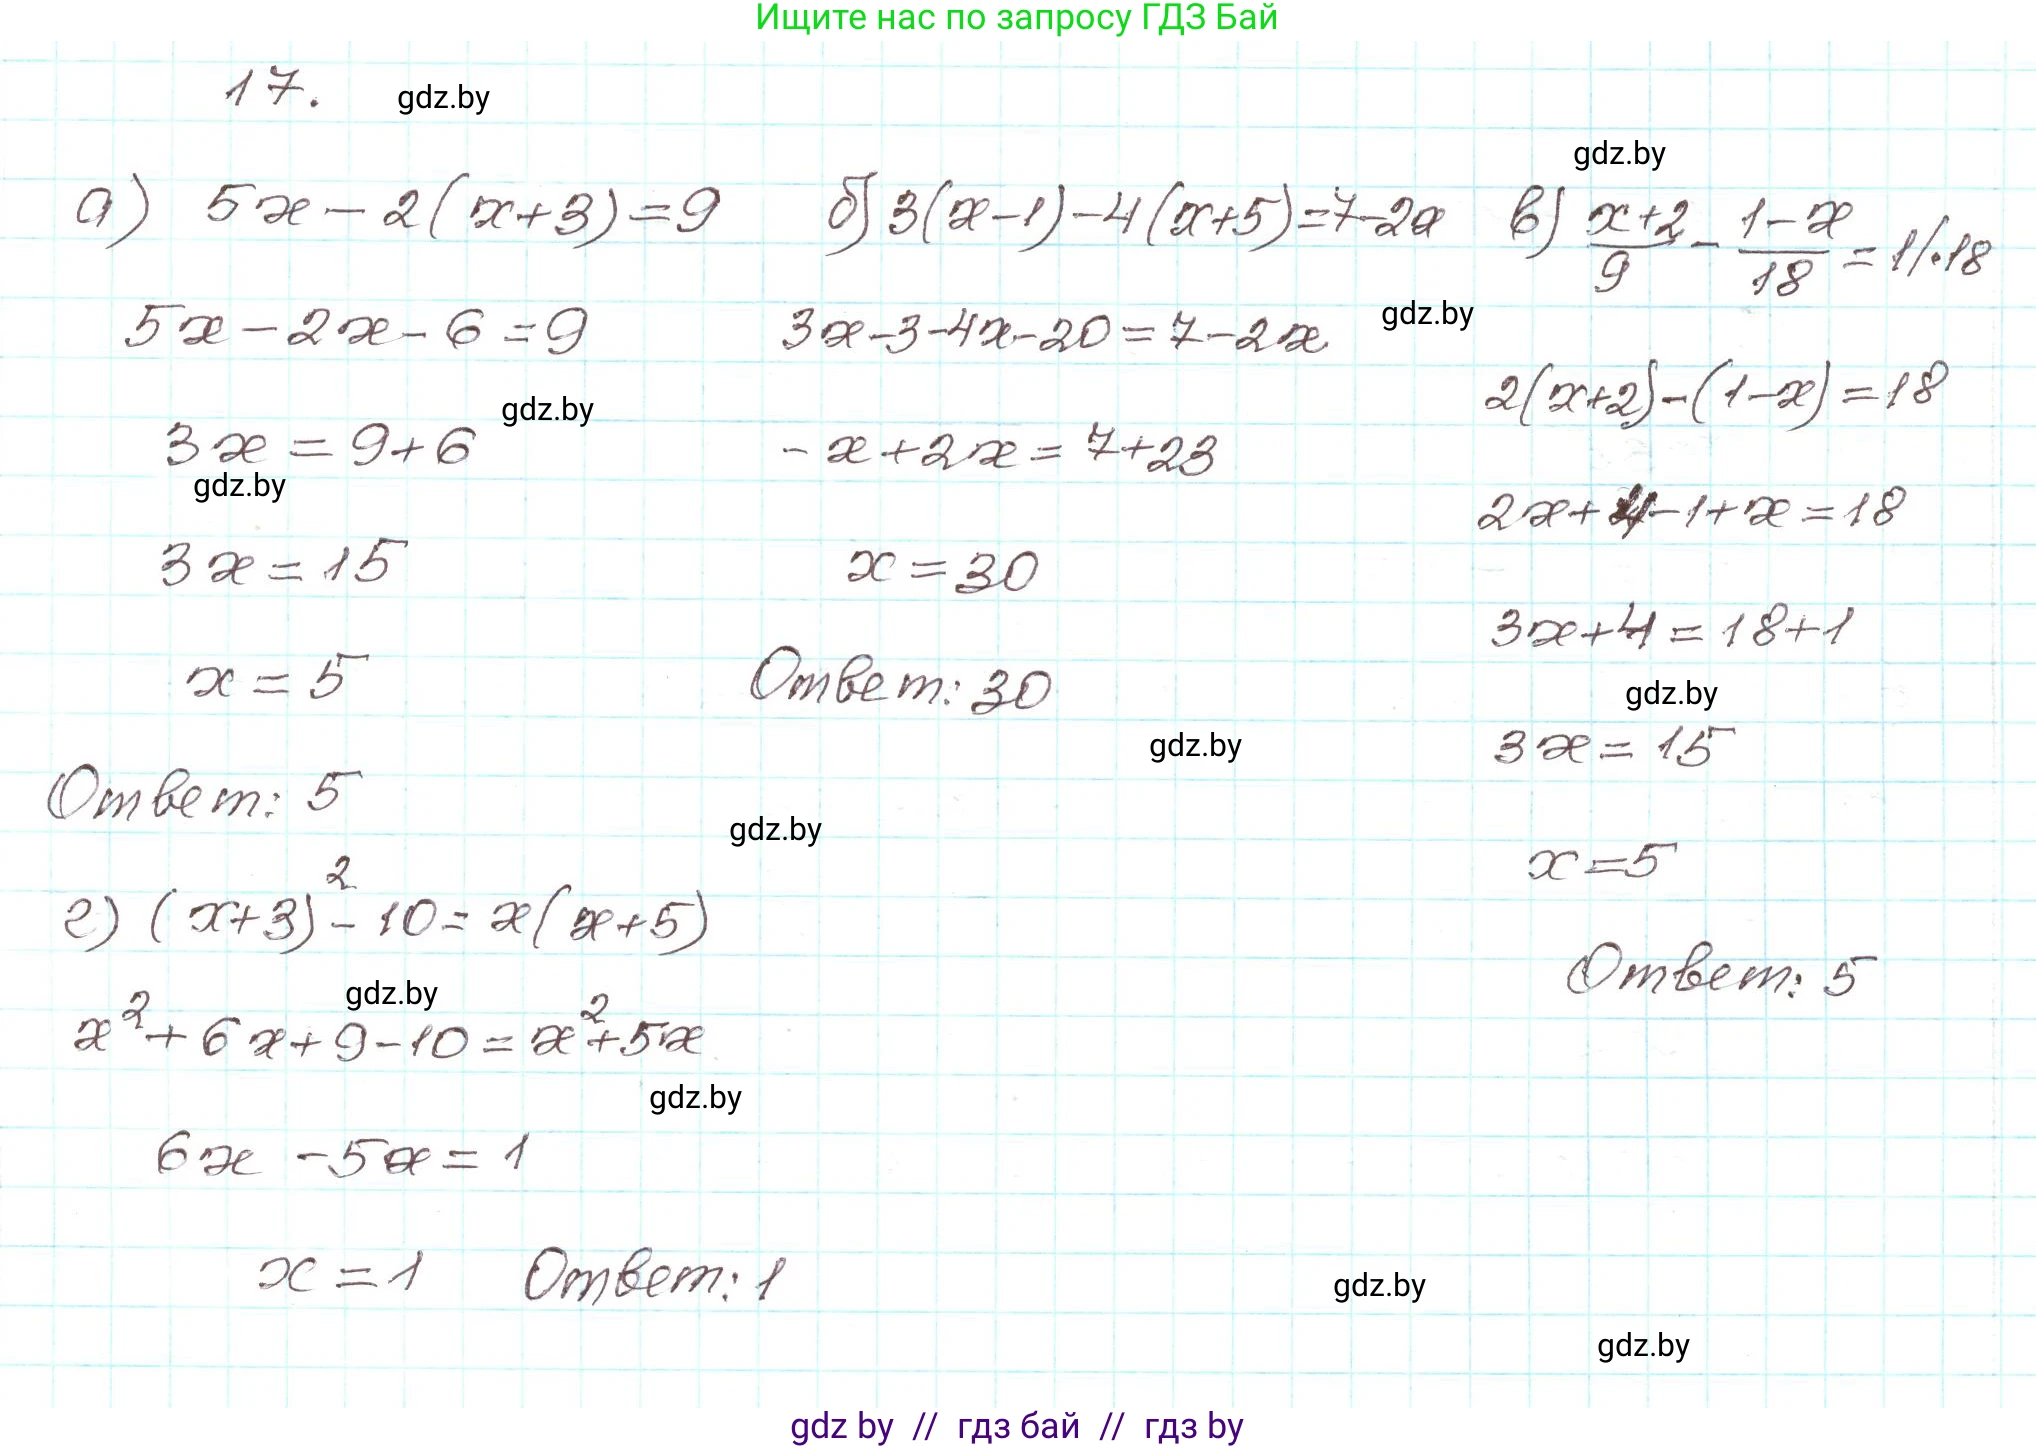 Ищите нас по запросу ГДЗ Бай
17.
gdz.by
gdz.by
а) 5x - 2(x+3) = 9
5x - 2x - 6 = 9
gdz.by
3x = 9+6
gdz.by
3x = 15
x = 5
Ответ: 5
б) 3(x-1) - 4(x+5) = 7-2x
gdz.by
3x-3-4x-20 = 7-2x
-x+2x = 7+23
x = 30
Ответ: 30
gdz.by
gdz.by
в) (x+2)/9 - (1-x)/18 = 1 /·18
2(x+2)-(1-x) = 18
2x+4-1+x = 18
3x+4 = 18+1
gdz.by
3x = 15
x = 5
Ответ: 5
г) (x+3)² - 10 = x(x+5)
gdz.by
x² + 6x + 9 - 10 = x² + 5x
gdz.by
6x - 5x = 1
x = 1 Ответ: 1
gdz.by
gdz.by
gdz by // гдз бай // гдз by